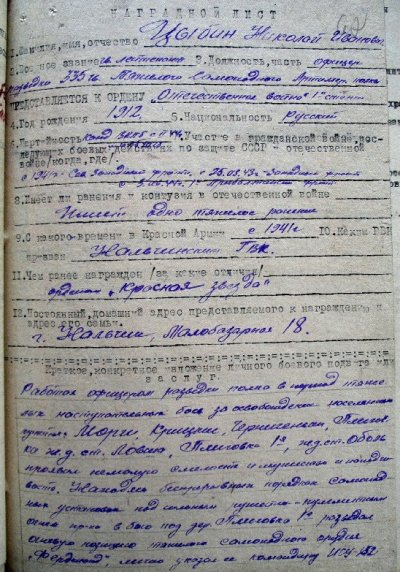 НАГРАДНОЙ ЛИСТ
1. Фамилия, имя, отчество Цыбин Николай Иванович
2. Военное звание гв. лейтенант 3. Должность, часть офицер
разведки 335 гв. Тяжелого Самоходного Артиллер. полка
ПРЕДСТАВЛЯЕТСЯ К ОРДЕНУ „Отечественная война" 1ст
4. Год рождения 1912 5. Национальность Русский
6. Партийность канд. ВКПб с 44г. Участие в гражданской войне, последующих боевых действиях по защите СССР и отечественной
войне /когда, где/
с 1941г. Сев. Западный фронт, с 25.03.43г. Западный фронт
1й Прибалтийский фронт
8. Имеет ли ранения и контузия в отечественной войне
Имеет одно тяжелое ранение
9. С какого времени в Красной Армии с 1941г 10. Каким РВК
призван Нальчинским ГВК.
11. Чем ранее награжден /за какие отличия/
орденом „Красная звезда"
12. Постоянный домашний адрес представляемого к награждению и
адрес его семьи.
г. Нальчик, Малобазарная 18.
Краткое, конкретное изложение личного боевого подвига или
заслуг.
Работая офицером разведки полка в период тяже-
лых наступательных боев за освобождение населенных
пунктов: Морги, Крицкие, Плигов-
ка ж.д. ст. Ловша, Плиговка 1я, ж.д. ст. Оболь
проявил немалую смелость и мужество и находчи-
вость. Находясь в боевых порядках самоход-
ных установок под сильным ружейно-пулеметным
огнем в бою под дер. Плиговка 1я разведал
огневую позицию тяжелого самоходного орудия
„Фердинанд", лично указал её командиру ИСУ-152